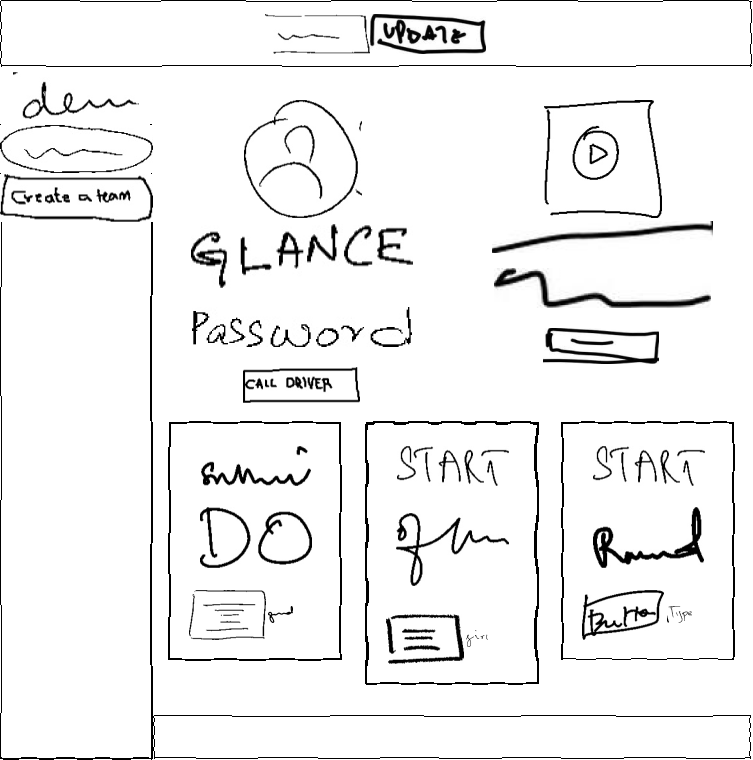 UPDATE
dem
Create a team
GLANCE
Password
CALL DRIVER
DO
START
of
START
Round
Button
Type